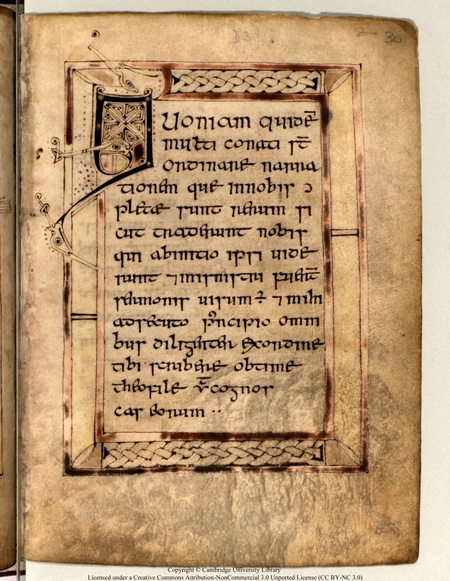 30
Quoniam quidē
multi conati st̄
ordinare narra
tionem que innobis ɔ
pletæ sunt rerum si
cut traderunt nobis
qui abinitio ipsi uide
runt ⁊ ministri fuer̄t
sermonis uisum ē ⁊ mihi
adsecuto pͥncipio omni
bus diligenter exordine
tibi scribere obtime
theofile cognos
cas eorum ··
Copyright © Cambridge University Library
Licensed under a Creative Commons Attribution-NonCommercial 3.0 Unported License (CC BY-NC 3.0)